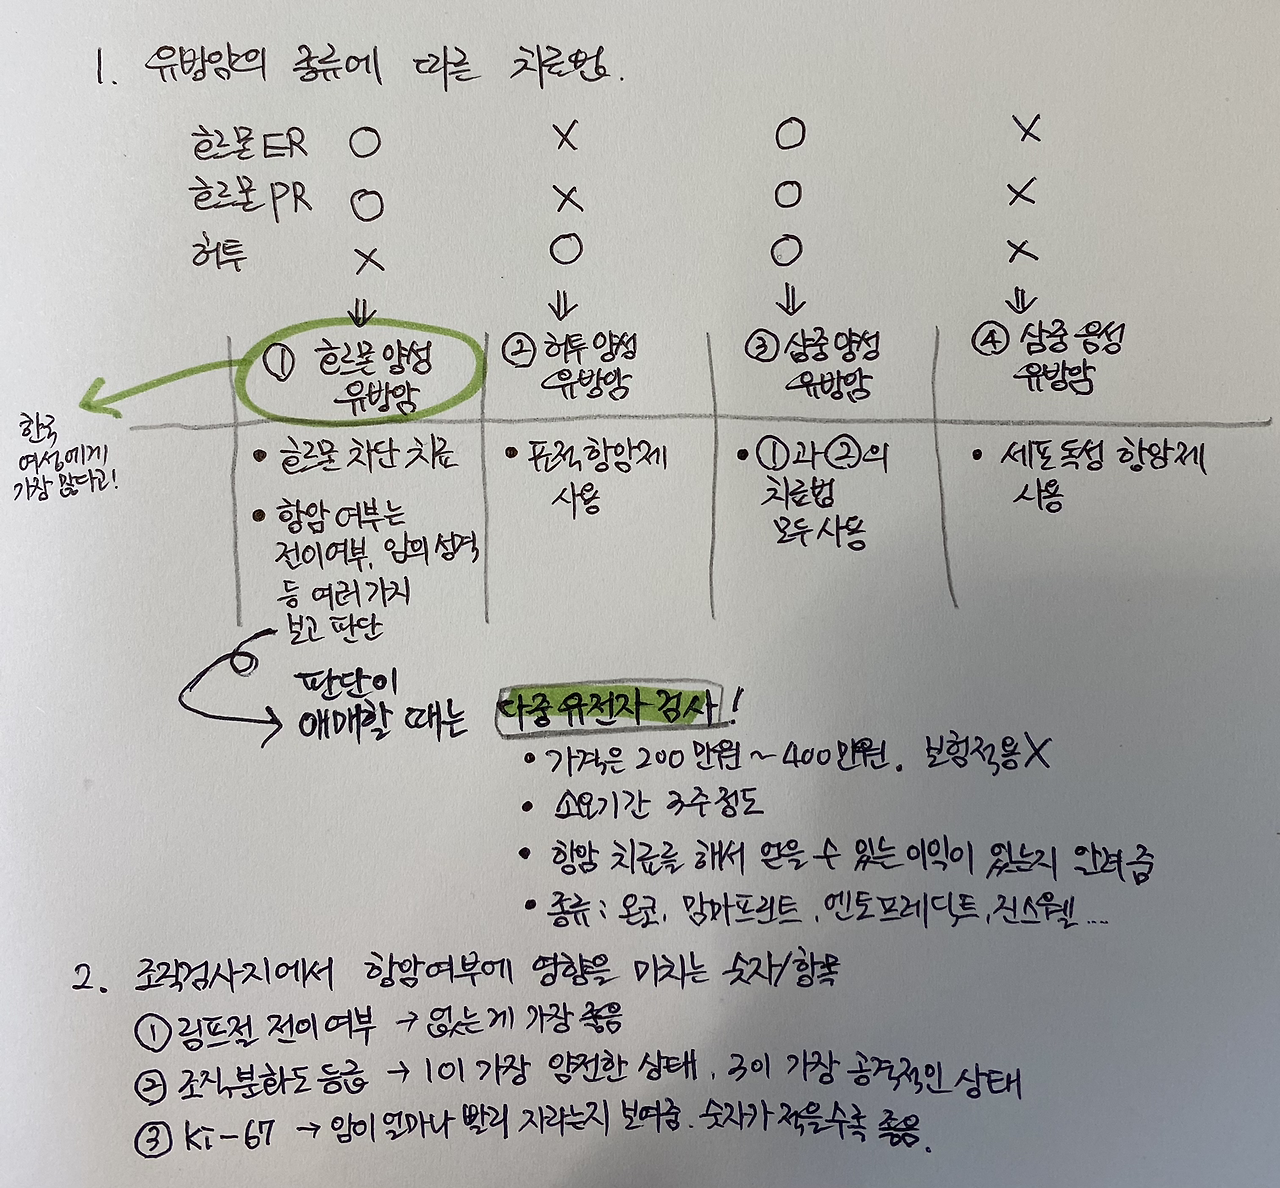 1. 유방암의 종류에 따른 치료법.
호르몬 ER O X O X
호르몬 PR O X O X
허투 X O O X
⇓ ⇓ ⇓ ⇓
① 호르몬 양성 ② 허투 양성 ③ 삼중 양성 ④ 삼중 음성
유방암 유방암 유방암 유방암
한국
여성에게
가장 많다고!
• 호르몬 차단 치료
• 항암 여부는
전이여부, 암의 성격
등 여러 가지
보고 판단
• 표적항암제
사용
• ①과 ②의
치료법
모두 사용
• 세포독성 항암제
사용
판단이
애매할 때는 다중유전자 검사!
• 가격은 200만원 ~ 400만원. 보험적용X
• 소요기간 3주정도
• 항암 치료를 해서 얻을 수 있는 이익이 있는지 알려줌
• 종류: 온코, 맘마프린트, 엔도프레딕트, 진스웰...
2. 조직검사지에서 항암여부에 영향을 미치는 숫자/항목
① 림프절 전이 여부 → 없는게 가장 좋음
② 조직분화도 등급 → 1이 가장 얌전한 상태, 3이 가장 공격적인 상태
③ Ki-67 → 암이 얼마나 빨리 자라는지 보여줌. 숫자가 적을수록 좋음.